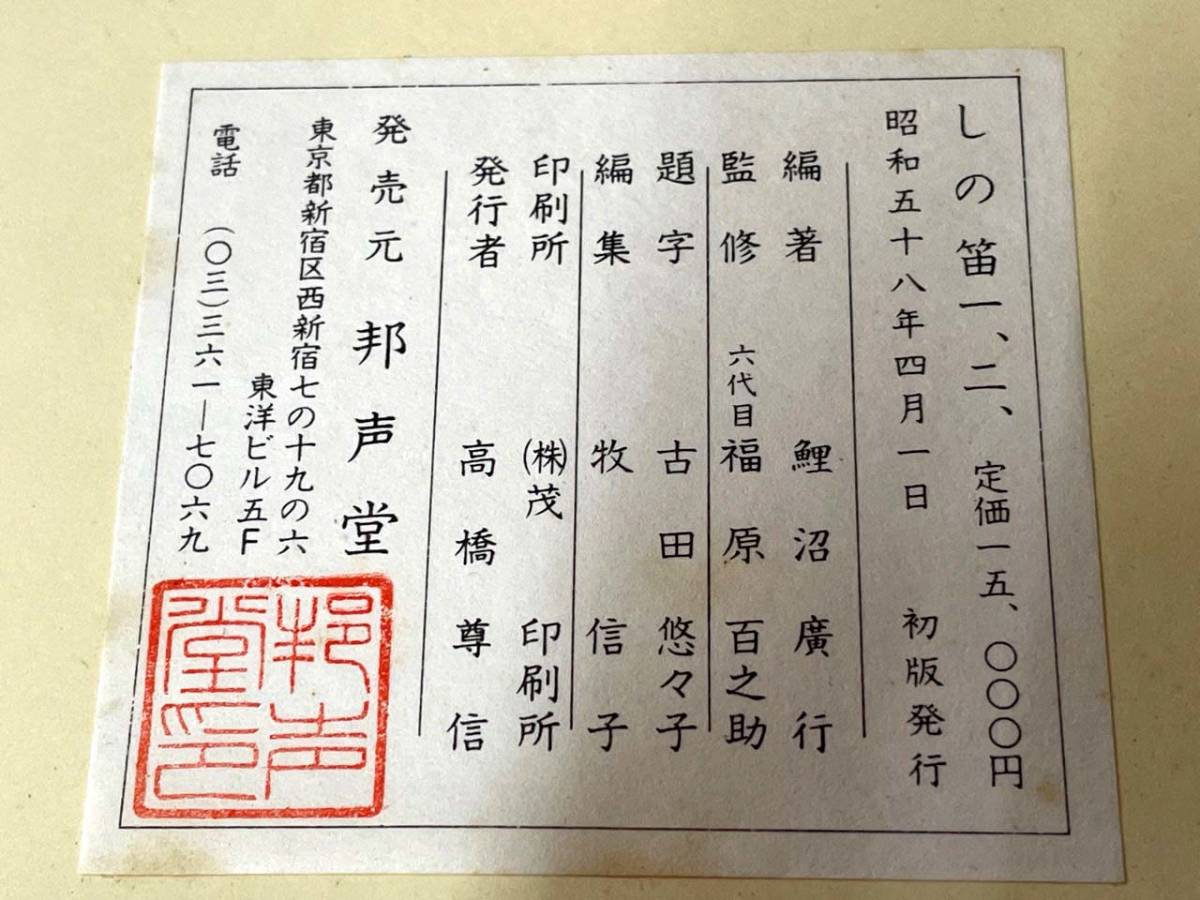 しの笛一、二、 定価一五、〇〇〇円
昭和五十八年四月一日 初版発行
編著 鯉沼廣行
監修 六代目福原百之助
題字 古田悠々子
編集 牧信子
印刷所 (株)茂印刷所
発行者 高橋尊信
発売元 邦声堂
東京都新宿区西新宿七の十九の六
東洋ビル五F
電話 (〇三)三六一―七〇六九
邦声
堂印